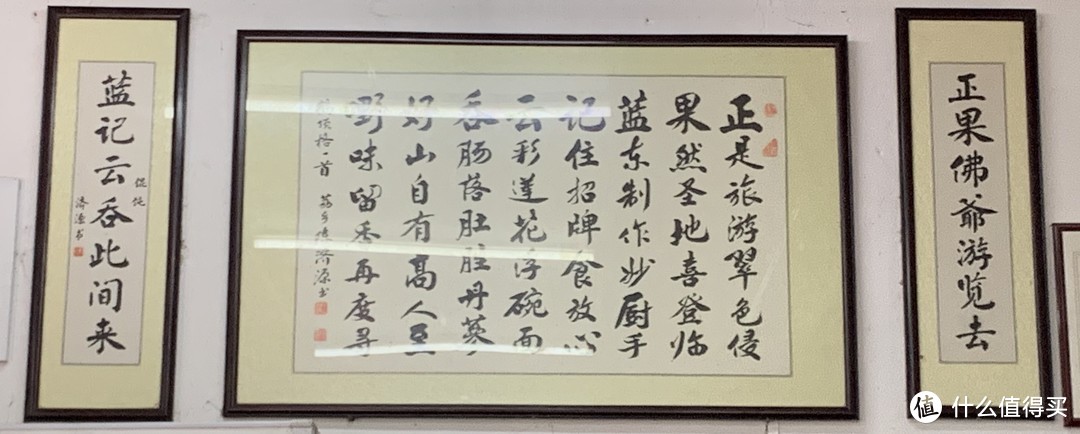 正果佛爺游览去
正是旅游翠色侵
果然圣地喜登临
蓝东制作妙厨手
记住招牌食放心
云彩莲花浮碗面
吞肠落肚胜丹蔘
好山自有高人至
嘢味留香再度寻
横格一首 荔乡陈济源书
蓝记云吞此间来
馄饨
济源书
值 什么值得买